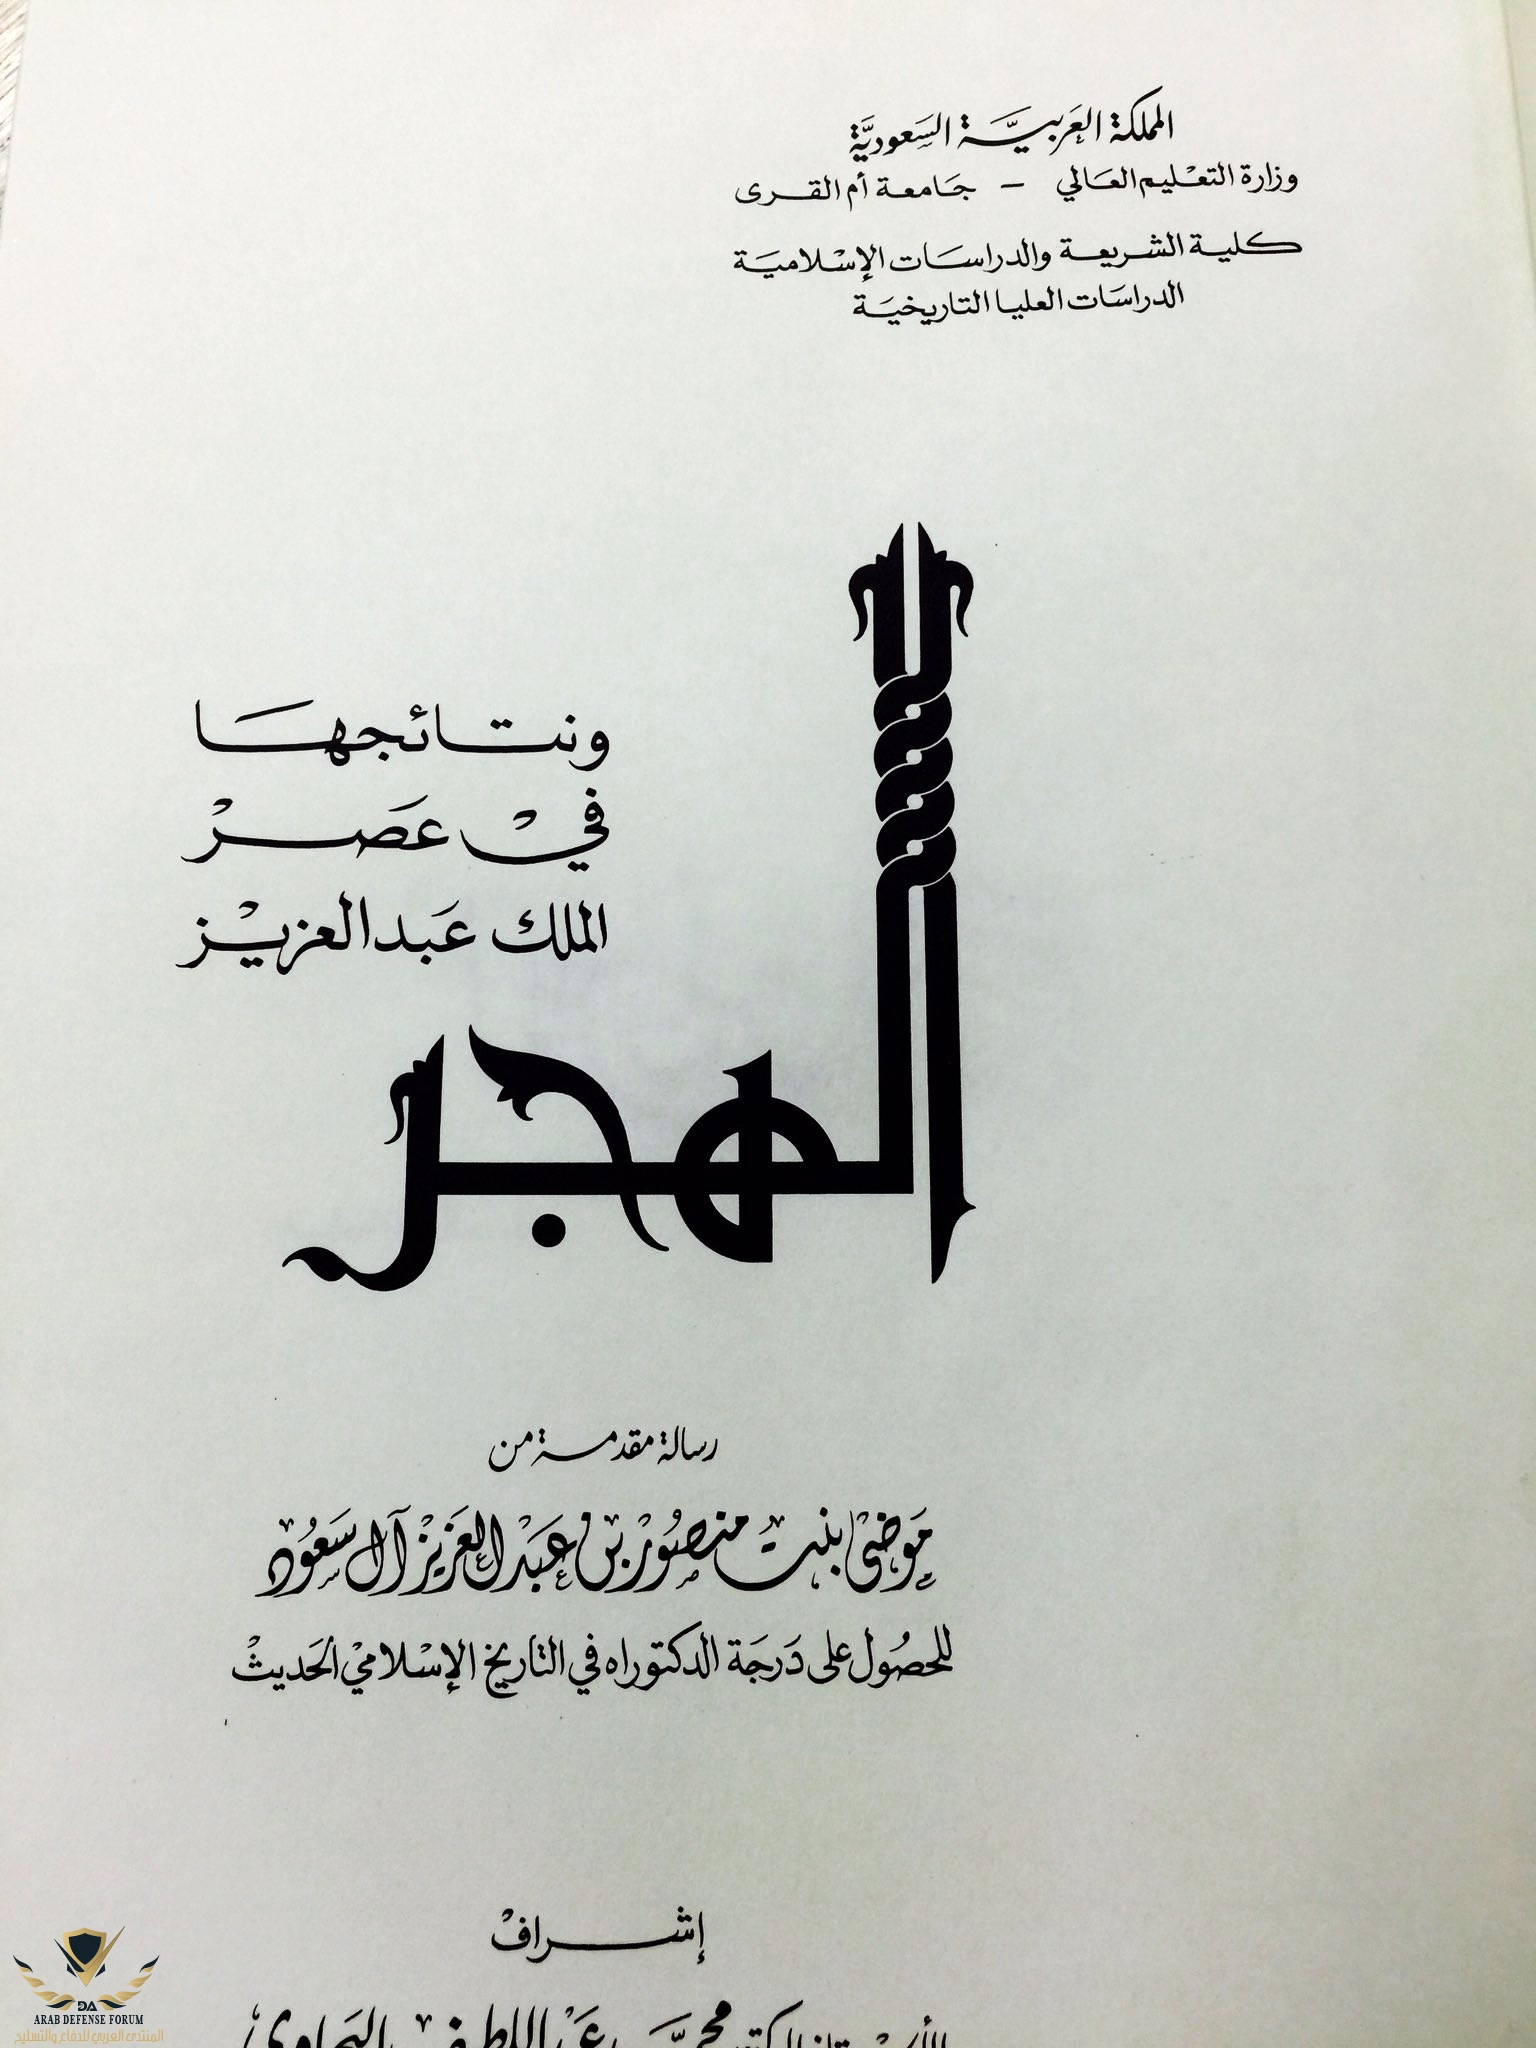 المملكة العَربيَّة السَعوديَّة
وزارة التعْليم العَالي - جَامعة أم القرى
كلية الشريعة والدراسَات الإسْلاميَة
الدراسَات العليا التاريخيَة
الهجر
ونتائجها
فيْ عَصرْ
الملك عَبد العزيْز
رسالة مقدمة من
مَوضىْ بنت منصُورْ بن عَبْد العَزيْز آل سَعُود
للحصُول على دَرجَة الدكتوراه في التاريخ الإسْلاميْ الحَديثْ
إشرافْ
الأستاذ الدكتور محمَّد عَبد اللطيف البحراوي
DA
ARAB DEFENSE FORUM
المنتدى العربي للدفاع والتسليح